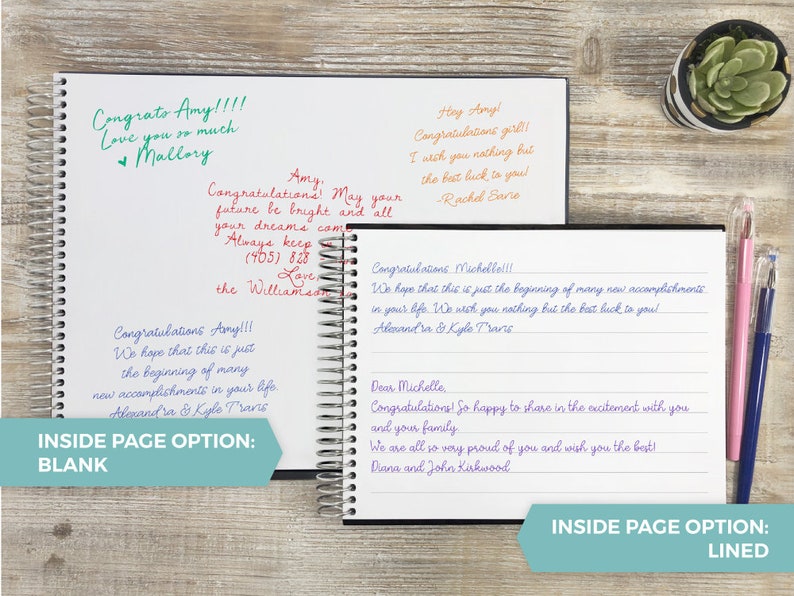 Congrats Amy!!!!
Love you so much
♥ Mallory
Hey Amy!
Congratulations girl!!
I wish you nothing but
the best luck to you!
-Rachel Sane
Amy,
Congratulations! May your
future be bright and all
your dreams come
Always keep
(405) 828
Love,
the Williamson
Congratulations Amy!!!
We hope that this is just
the beginning of many
new accomplishments in your life.
Alexandra & Kyle Travis
INSIDE PAGE OPTION:
BLANK
Congratulations Michelle!!!
We hope that this is just the beginning of many new accomplishments
in your life. We wish you nothing but the best luck to you!
Alexandra & Kyle Travis
Dear Michelle,
Congratulations! So happy to share in the excitement with you
and your family.
We are all so very proud of you and wish you the best!
Diana and John Kirkwood
INSIDE PAGE OPTION:
LINED